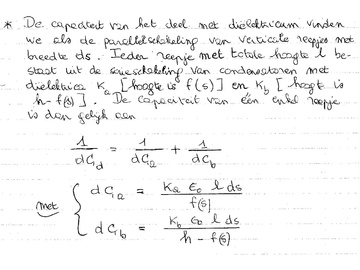 * De capaciteit van het deel met diëlektricum vinden
we als de parallelschakeling van verticale reepjes met
breedte ds. Ieder reepje met totale hoogte l be-
staat uit de serieschakeling van condensatoren met
diëlektrica Ka [hoogte is f(s)] en Kb [hoogte is
h - f(s)]. De capaciteit van één enkel reepje
is dan gelijk aan
1/dCd = 1/dCa + 1/dCb
met { dCa = Ka ε0 l ds / f(s)
dCb = Kb ε0 l ds / h - f(s)